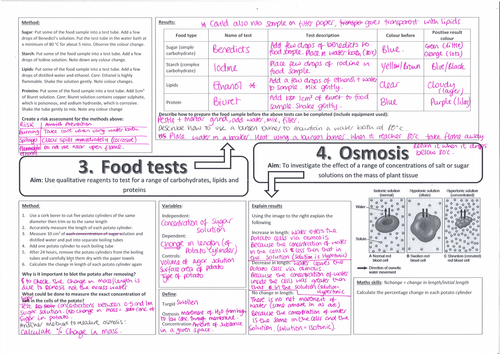 Method:
Sugar: Put some of the food sample into a test tube. Add a few
drops of Benedict's solution. Put the test tube in the water bath at
a minimum of 80 °C for about 5 mins. Observe the colour change.
Starch: Put some of the food sample into a test tube. Add a few
drops of Iodine solution. Note down any colour change.
Lipids: Put some of the food sample into a test tube. Add a few
drops of distilled water and ethanol. Care: Ethanol is highly
flammable. Shake the solution gently. Note colour changes.
Proteins: Put some of the food sample into a test tube. Add 1cm³
of Biuret solution. Care: Biuret solution contains copper sulphate,
which is poisonous, and sodium hydroxide, which is corrosive.
Shake the tube gently to mix. Note any colour change
Create a risk assessment for the methods above:
Risk
Burning Take care when using water bath
Results:
* could also mix sample on filter paper, transparent with lipids
Food type
Name of test
Test description
Colour before
Positive result
colour
Sugar (simple
carbohydrate)
Benedicts
Add few drops of benedicts to
food sample. Place in water bath
Blue.
Green (little)
Orange (lots)
Starch (complex
carbohydrate)
Iodine
Place few drops of iodine in
food sample.
Yellow/Brown
Blue/Black
Lipids
Ethanol *
Add a few drops of ethanol + water
to sample. Mix gently.
Clear
Cloudy
(layer)
Protein
Biuret
Add 1cm³ of Biuret to food
sample. Shake gently.
Blue
Purple (lilac)
Describe how to prepare the food sample before the above tests can be completed (include equipment used):
Describe how to use a bunsen burner to maintain a water bath at 80°c
3. Food tests
Aim: Use qualitative reagents to test for a range of carbohydrates, lipids and
proteins
4. Osmosis
Aim: To investigate the effect of a range of concentrations of salt or sugar
solutions on the mass of plant tissue
Method:
1. Use a cork borer to cut five potato cylinders of the same
diameter then trim so to the same length
2. Accurately measure the length of each potato cylinder.
3. Measure 10 cm³ of each concentration of sugar solution and
distilled water and put into separate boiling tubes
4. Add one potato cylinder to each boiling tube
5. After 24 hours, remove the potato cylinders from the boiling
tubes and carefully blot them dry with the paper towels
6. Calculate the change in length of each potato cylinder again
Why is it important to blot the potato after removing?
To check the change in mass/length is
due to osmosis not the excess water
What could be done to measure the exact concentration of
in the cells of the potato?
Another method to measure osmosis:
Calculate % change in mass.
Variables:
Independent:
Concentration of sugar
solution
Dependent:
Change in length (of
potato cylinder)
Controls:
Volume of sugar solution
Surface area of potato
Type of potato
Define
Turgid Swollen
Concentration Amount of substance
in a given space.
Explain results
Using the image to the right explain the
following
Increase in length: Water enters the
potato cells via osmosis
Because the concentration of water
in the cells is less than that in
the solution (solution is hypotonic)
Decrease in length: Water leaves the
potato cells via osmosis
Because the concentration of water
inside the cells was greater than
that in the solution.
No change in length:
There is no net movement of
water (same amount in as out)
Because the concentration of water
is the same in the cells and the
solution. (solution = isotonic).
Isotonic solution
(normal)
Hypotonic solution
(swollen)
Hypertonic solution
(concentrated)
Water
Solute
A Normal red
blood cell
B Swollen red
blood cell
Direction of osmotic
water movement
Maths skills: %change = change in length/initial length
Calculate the percentage change in each potato cylinder